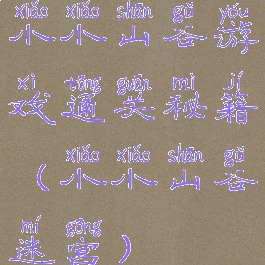 xiǎo xiǎo shān gǔ yóu
小小山谷游
xì tōng guān mì jí
戏通关秘籍
xiǎo xiǎo shān gǔ
(小小山谷
mí gōng
迷宫)